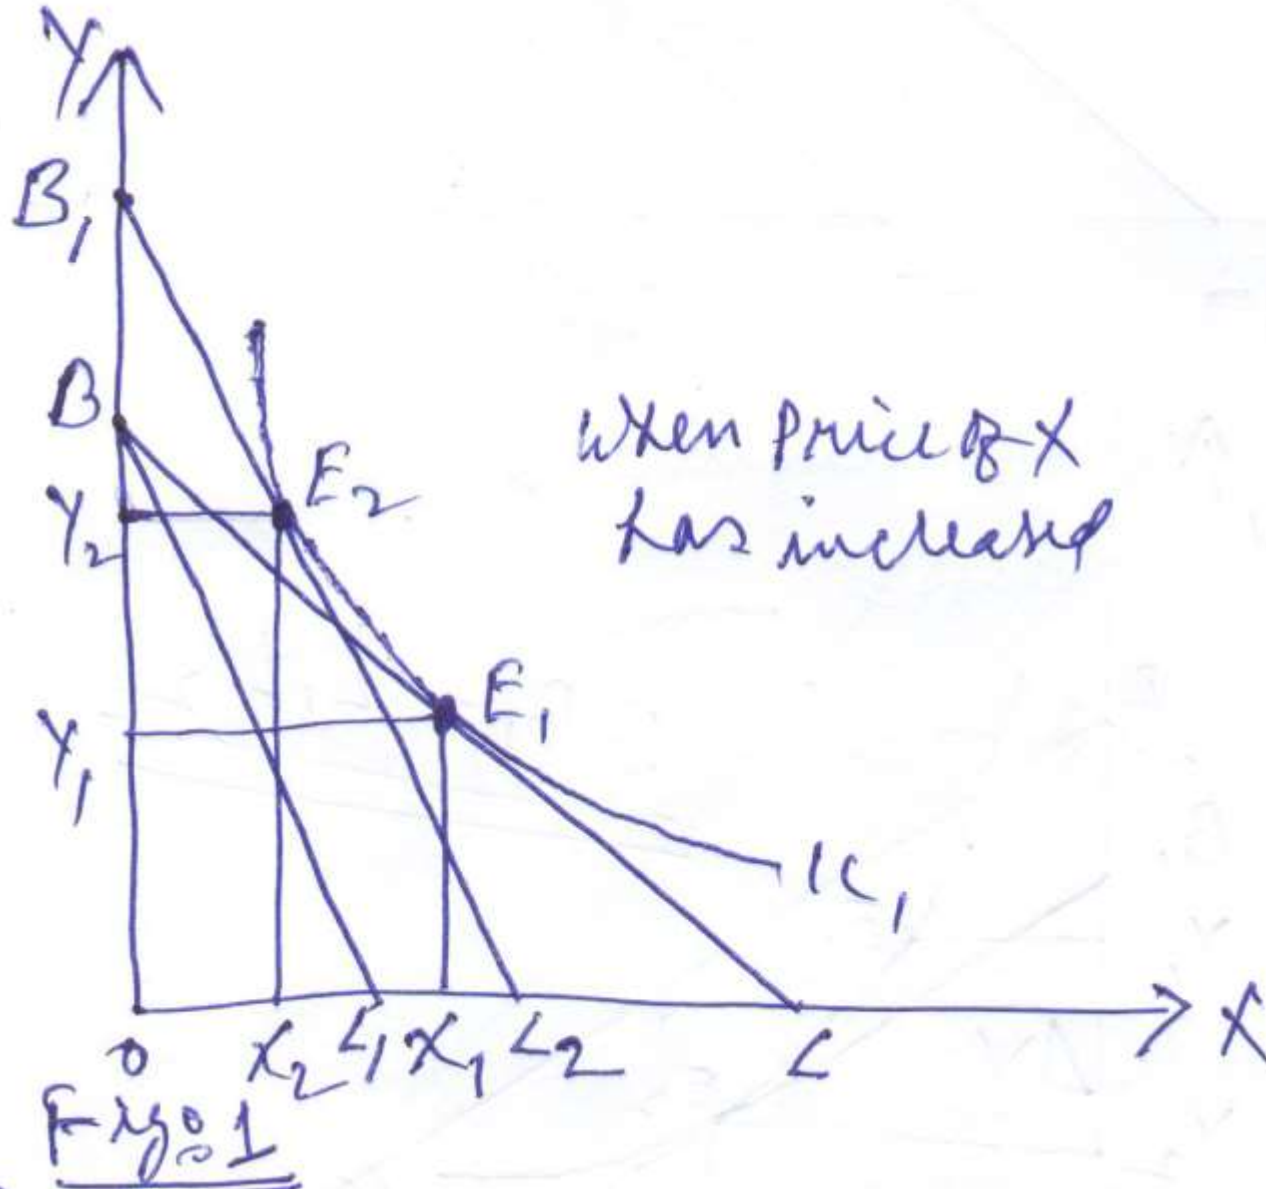 Y
B₁
B
Y₂
E₂
When Price of X
has increased
Y₁
E₁
IC₁
0 X₂ L₁ X₁ L₂ L X
Fig: 1